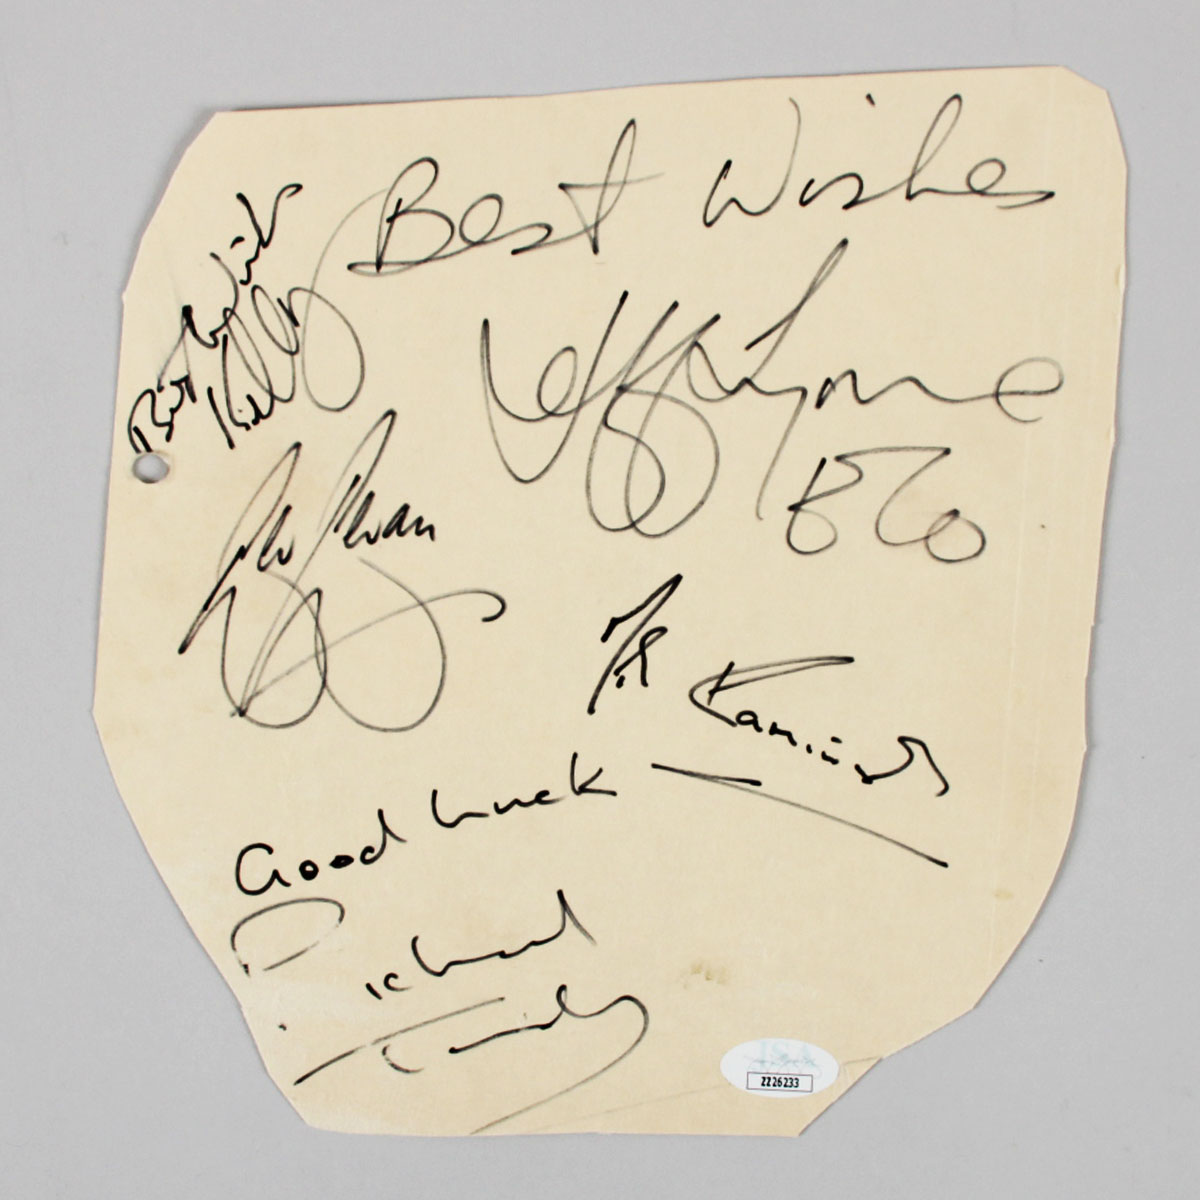 Best Wishes
Jeff Lynne
ELO
Best Wishes
Kelly
Bev Bevan
Mik Kaminski
Good Luck
Richard
Tandy
JSA
ZZ26233